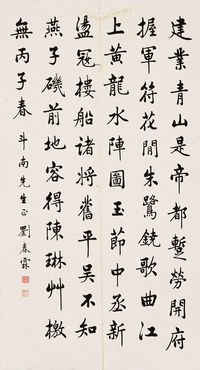 建業青山是帝都蹔勞開府
握軍符花閒朱鷺鐃歌曲江
上黃龍水陣圖玉節中丞新
盪冦樓船諸將舊平吳不知
燕子磯前地容得陳琳艸檄
無丙子春 斗南先生正 劉春霖